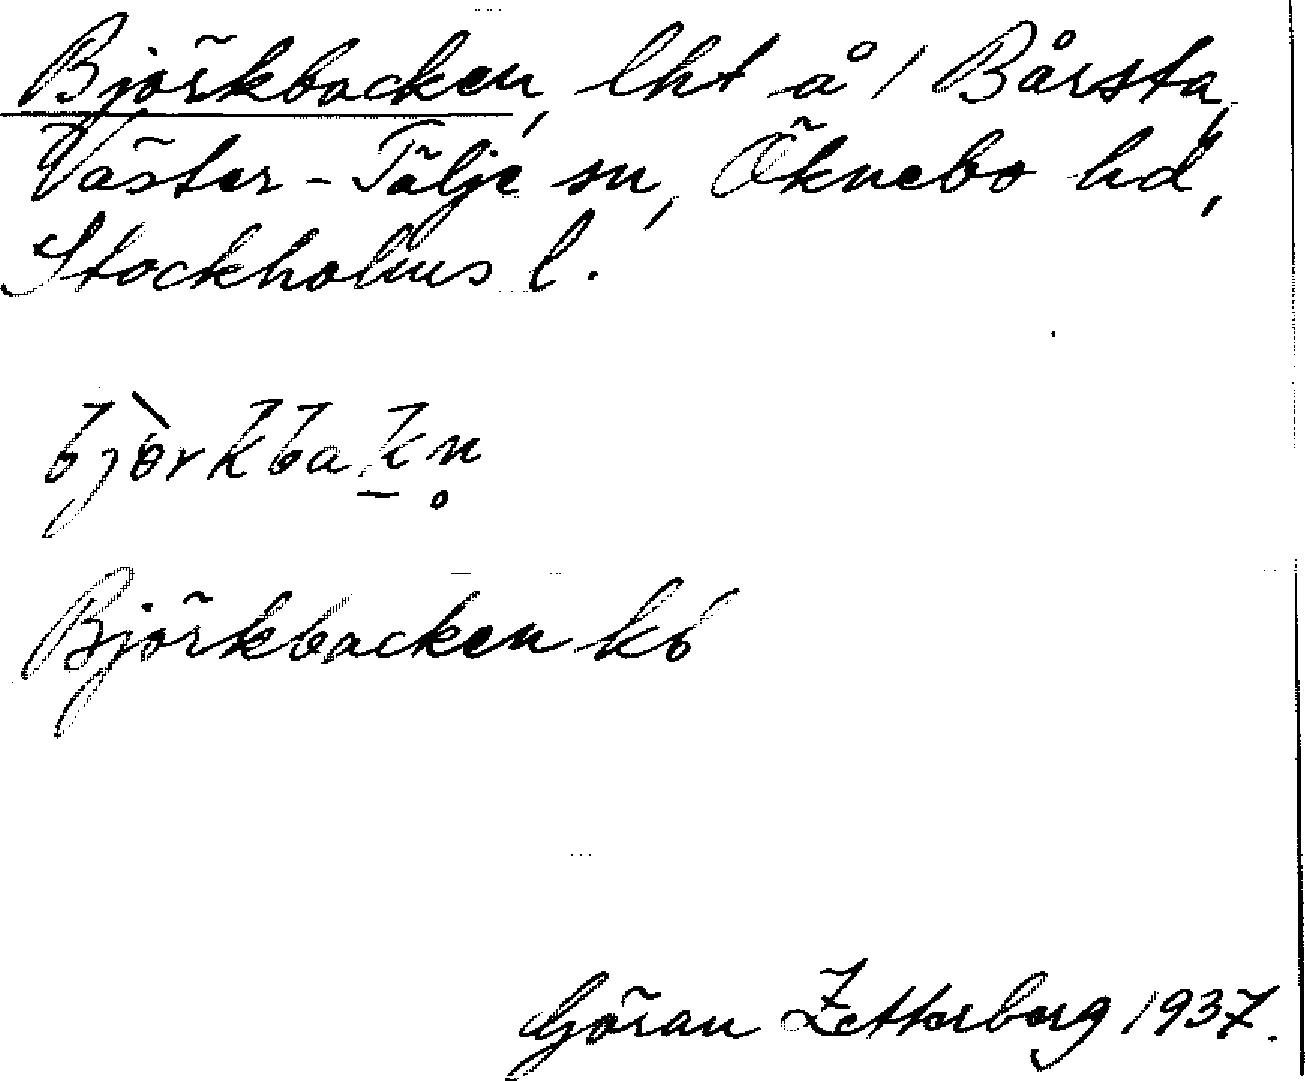 Björkbacken, lht å 1 Bårsta,
Väster-Tälje sn, Öknebo hd,
Stockholms l.
bjɵ̀rkbak̠n̥
Björkbacken kb
Göran Zetterberg 1937.